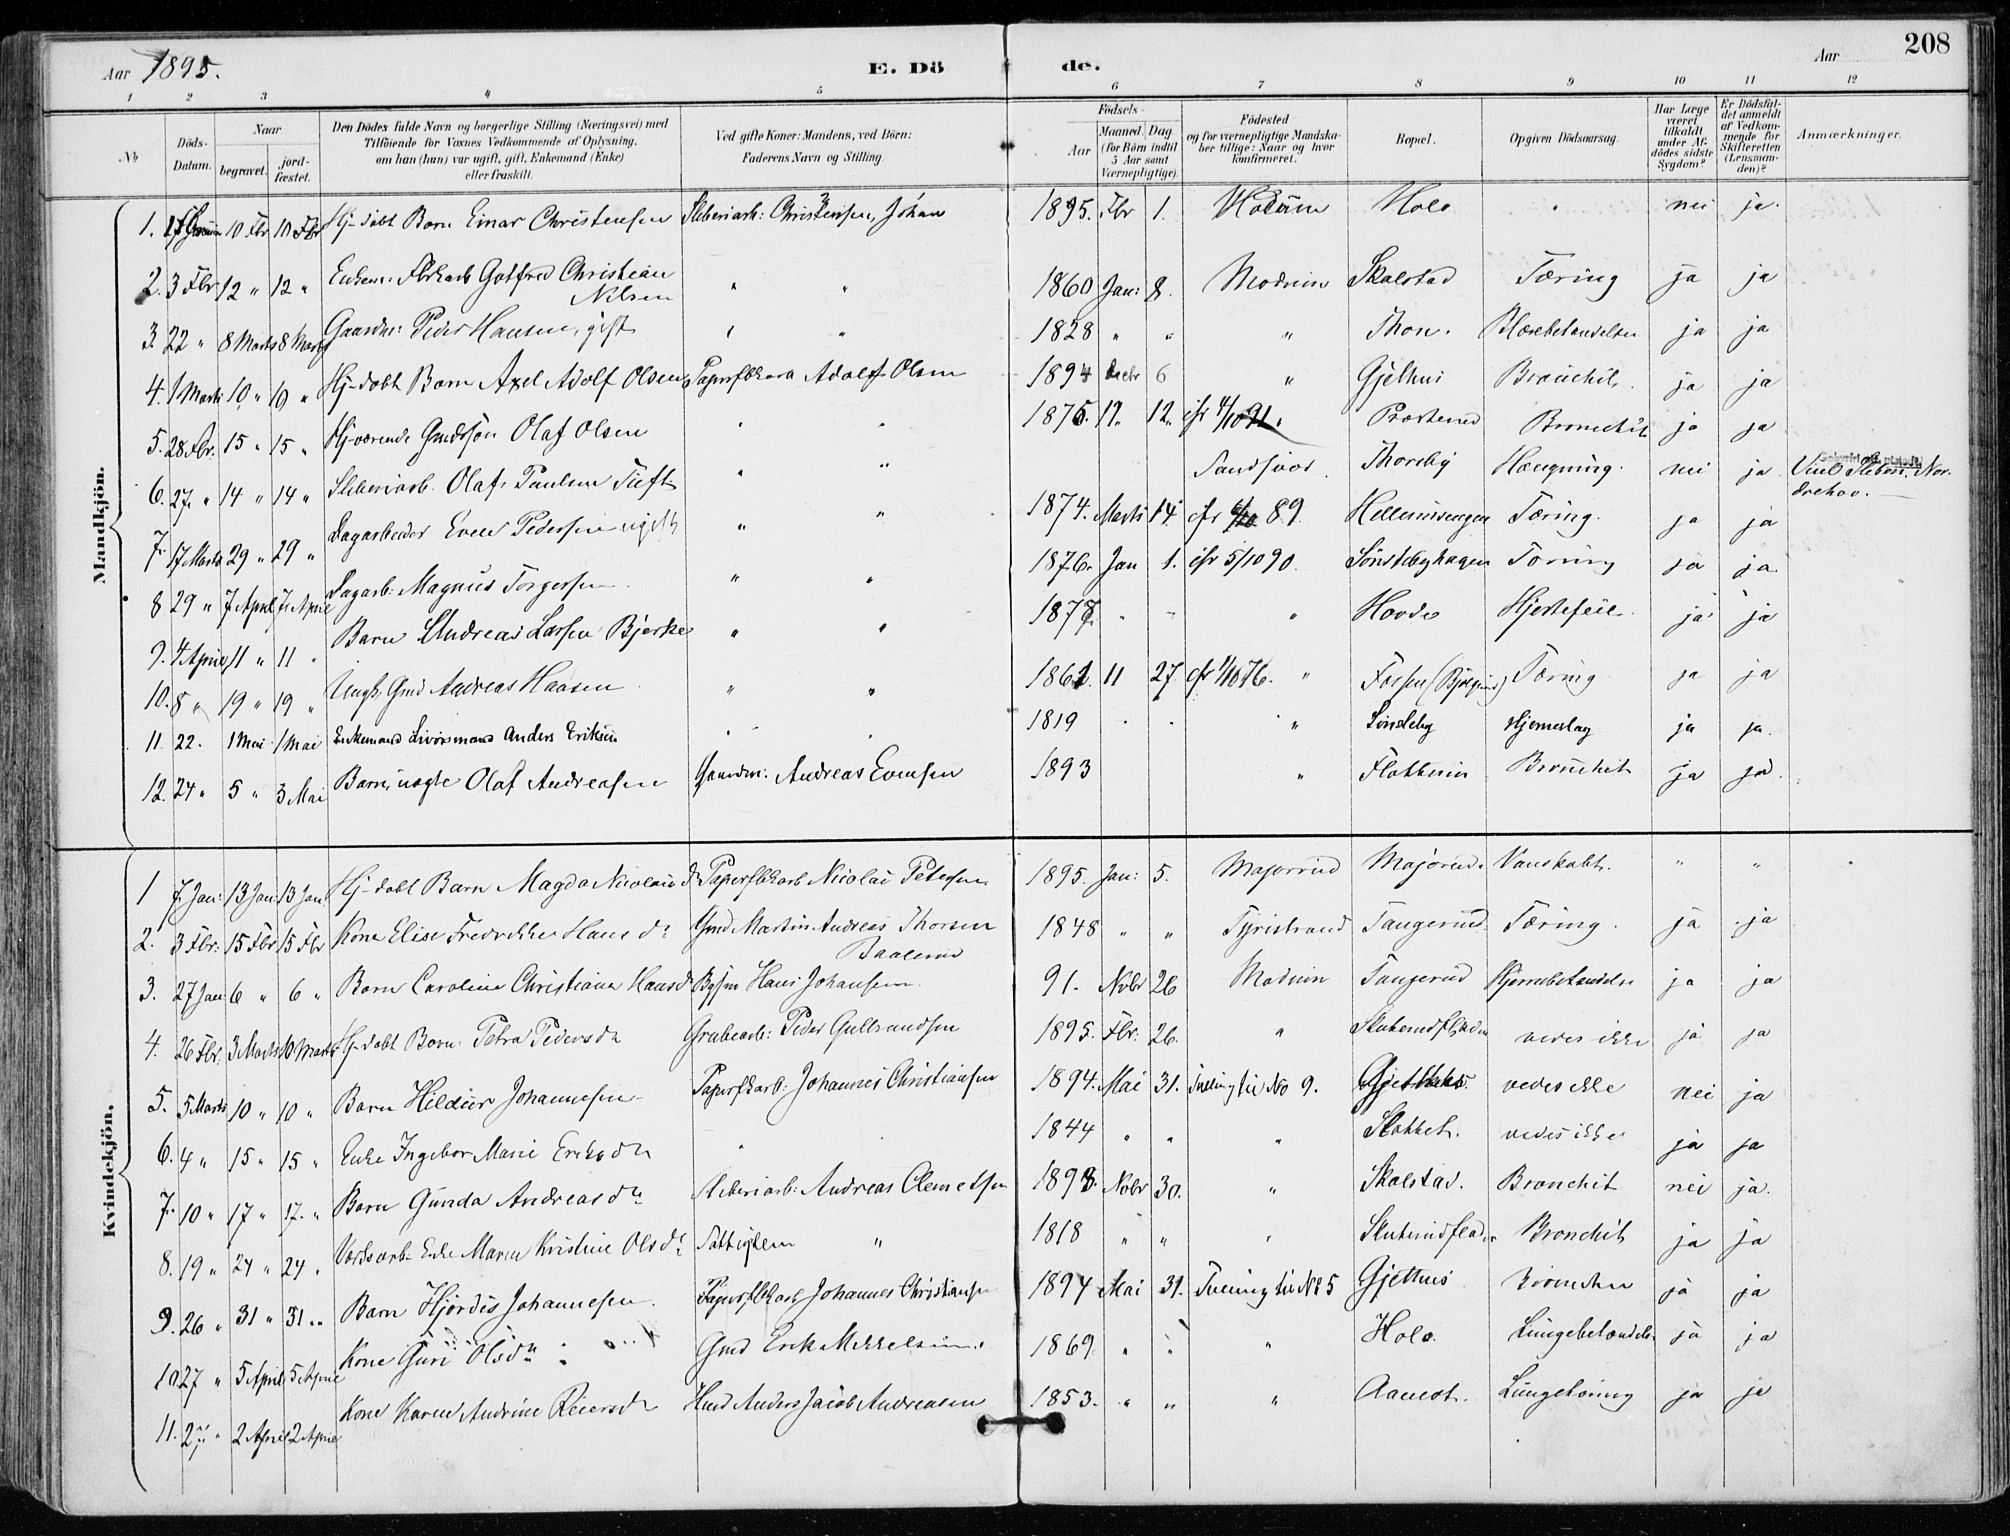 Aar 1895.
E. Dö
de.
Aar
208
1 2 3 4 5 6 7 8 9 10 11 12
No
Döds-Datum.
Naar
begravet.
jord-fæstet.
Den Dödes fulde Navn og borgerlige Stilling (Næringsvei) med
Tilföiende for Voxnes Vedkommende af Oplysning,
om han (hun) var ugift, gift, Enkemand (Enke)
eller fraskilt.
Ved gifte Koner: Mandens, ved Börn:
Faderens Navn og Stilling.
Födsels-
Aar
Maaned. Dag.
(for Börn indtil
5 Aar samt
Værnepligtige).
Födested
og for værnepligtige Mandska-
ber tillige: Naar og hvor
konfirmeret.
Bopæl.
Opgiven Dödsaarsag.
Har Læge
været
tilkaldt
under Af-
dödes sidste
Sygdom?
Er Dödsfal-
det anmeldt
af Vedkom-
mende for
Skifteretten
(Lensman-
den)?
Anmærkninger.
Mandkjön.
1. 10 Fbr 10 Fbr Hj-døbt Barn Einar Christensen Sliberiarb: Christensen, Johan 1895. Fbr 1. Modum Holo " nei ja.
2. 3 Fbr 12 " 12 " Enkem: Gotfred Christian Nilsen " " 1860 Jan: 8. Modum Skalstad Tæring ja ja
3. 22 " 8 Marts 8 Marts Gaardm: Peder Hansen, gift " " 1828 " " " Thon. Blærebetændelse ja ja
4. 1 Marts 10 " 10 " Hj-døbt Barn Axel Adolf Olsen Adolf Olsen 1894 Decbr 6 " Gjethus Bronchit. ja ja
5. 28 Fbr. 15 " 15 " Hj-værende Gmdssøn Olaf Olsen " " 1876. 12. Bronchit ja ja
6. 27. " 14 " 14 " Sliberiarb. Olaf Paulsen Tuft " " Thorsby Hængning. nei ja
drehov.
7. 17 Marts 29 " 29 " Dagarbeider Even Pedersen ugift " " 1874. Marts 14 cfr 89. Hellumsengen Tæring. ja ja
8 29 " 7 April 7 April Dagarb: Magnus Torgersen " " 1876. Jan 1. cfr 5/10 90. Sønstebyhagen Tæring ja ja
9. 4 April 11 " 11 " Barn Andreas Larsen Bjerke " " 1877. " " " Hovde Hjertefeil. ja ja
10. 8 " 19 " 19 " Ungk. Gmd Andreas Haasen " " 1861. 11 27 cfr 1/10 76. " Fossen Tæring ja ja
11. 22. 1 Mai 1 Mai Enkemand Livørsmand Anders Eriksen " " 1819 " " " Sønsteby Hjerneslag ja ja.
12. 24 " 5 " 3 Mai Barn, uægte Olaf Andreasen Gaardm: Andreas Evensen 1893 " Flottum Bronchit ja ja.
Kvindekjön.
1 7 Jan: 13 Jan: 13 Jan: Hj-døbt Barn Magda Nicolaisdr Papirfbkarb Nicolai Petersen 1895. Jan: 5. Majorrud Majorud. Vanskabt. " " "
2. 3 Fbr: 15 Fbr 15 Fbr Kone Elise Fredrikke Hansdr Gmd Martin Andreas Thorsen Baalerud 1848 " " Tyristrand Tangerud Tæring. ja ja
3. 27 Jan 6 " 6 " Barn Caroline Christiane Hansdr Hans Johansen. 91. Nobr 26 Modum Tangerud Hjernebetændelse ja ja
4. 26 Fbr. 3 Marts 10 Marts Hj-døbt Barn: Petra Pedersdr Grubearb: Peder Gulbrandsen 1895. Fbr: 26. " vedes ikke ja ja
5. 5 Marts 10 " 10 " Barn Hildur Johannesen Papirfbkarb: Johannes Christiansen 1894. Mai 31. Tvilling til No 9. Gjethus. vedes ikke nei ja
6. 4 " 15 " 15 " Enke Ingebor Marie Eriksdr " 1844 " " " Stokket. vedes ikke ja ja
7. 10 " 17 " 17. " Barn Gunda Andreasdr Sliberiarb: Andreas Clemetsen 1893. Nobr 30. " Skalstad. Bronchit nei ja.
8. 19 " 24 " 24 " Enke Maren Kristine Olsdr Fattiglem " 1818 " " " Bronchit ja ja
9. 26 " 31 " 31 " Barn Hjørdis Johannesen. Papirfbkarb Johannes Christiansen 1894 Mai 31. Tvilling til No 5 Gjethus Bronchit ja ja
10. 27 " 5 April 5 April Kone Guri Olsdr Gmd Erik Mikkelsen. 1869 " " " Holo. Lungebetændelse ja ja
11. 2 April 2 April Kone Karen Andrine Reiersdr Hmd Anders Jacob Andreasen 1853. " " " Aamot. Lungetæring ja ja